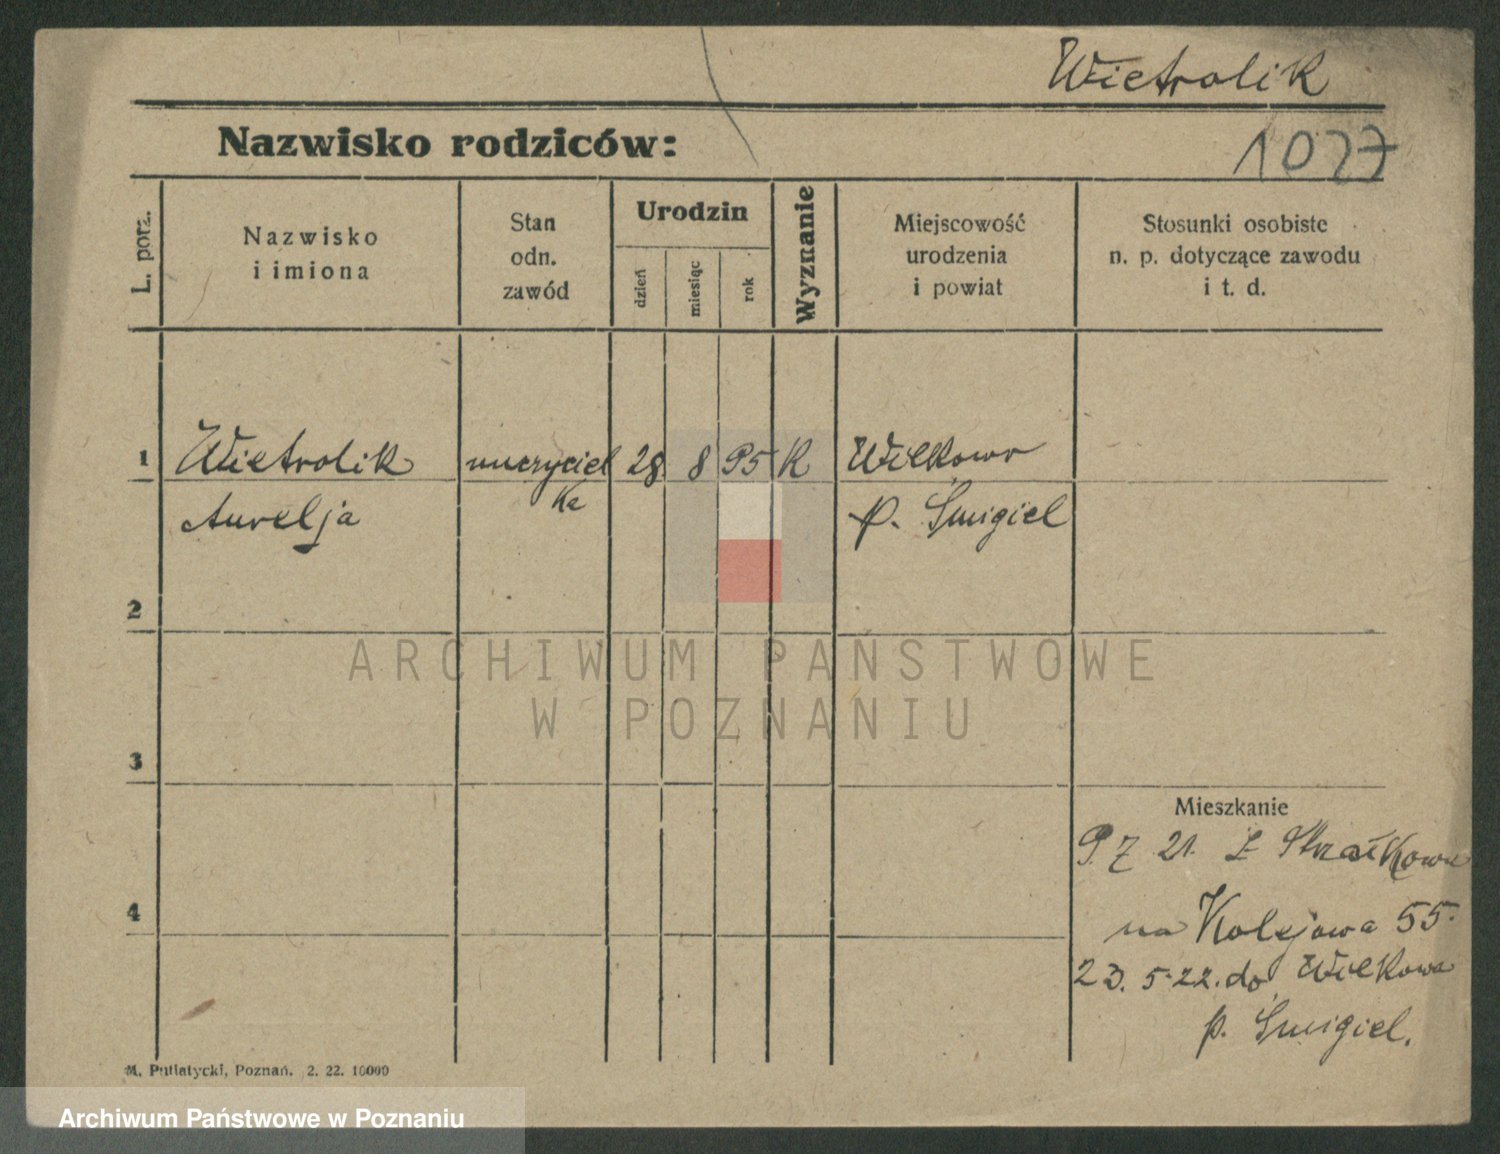 Wietrolik
Nazwisko rodziców:
1027
L. porz.
Nazwisko
i imiona
Stan
odn.
zawód
Urodzin
dzień
miesiąc
rok
Wyznanie
Miejscowość
urodzenia
i powiat
Stosunki osobiste
n. p. dotyczące zawodu
i t. d.
1 Wietrolik nauczyciel 28 8 95 K Wilkowo
Aurelja ka p. Śmigiel
2
ARCHIWUM PAŃSTWOWE
W POZNANIU
3
Mieszkanie
9. 7 21. z Strzałkowa
4
na Kolejowa 55.
23. 5. 22. do Wilkowa
p. Śmigiel.
M. Putiatycki, Poznań. 2. 22. 10000
Archiwum Państwowe w Poznaniu